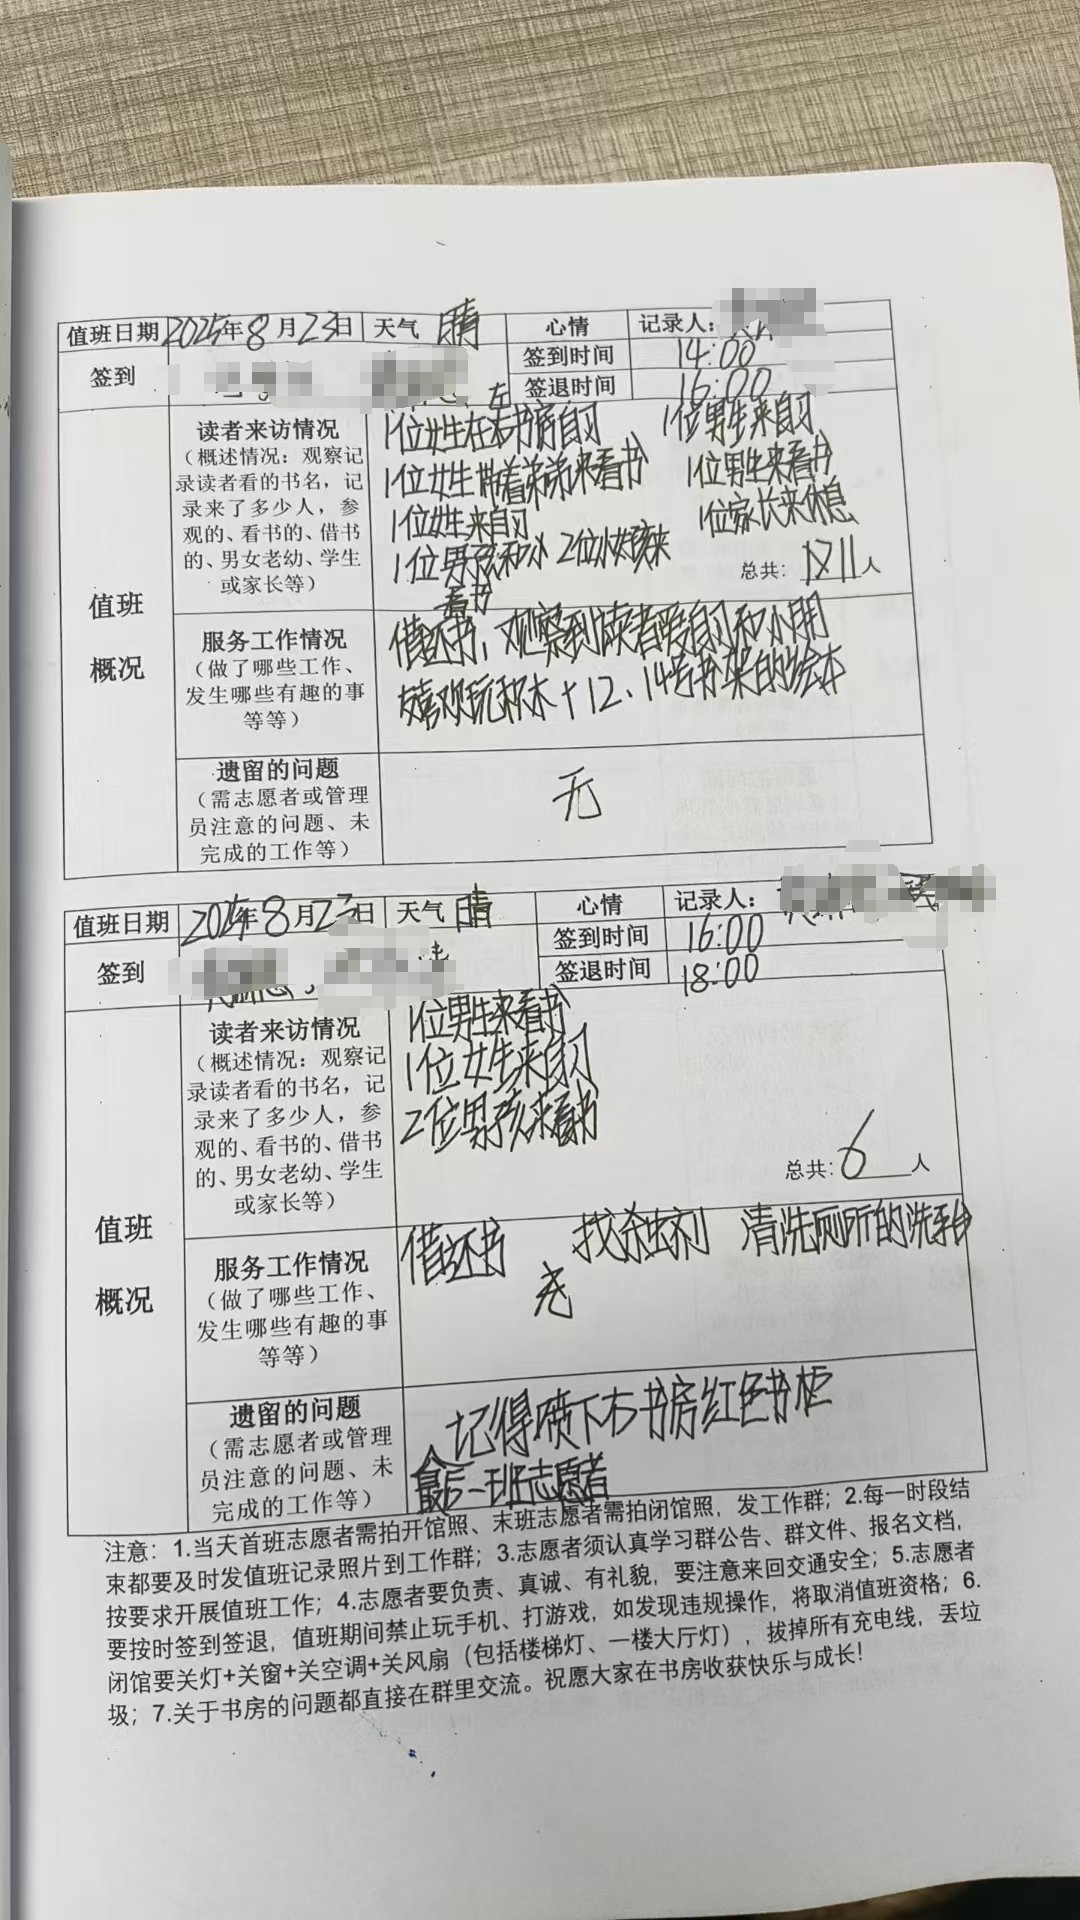 值班日期 2025年8月23日 天气 晴 心情 记录人：
签到 签到时间 14:00
签退时间 16:00
值班概况
读者来访情况
（概述情况：观察记
录读者看的书名，记
录来了多少人，参
观的、看书的、借书
的、男女老幼、学生
或家长等）
左
1位女生在书房自习 1位男生来自习
1位女生带着弟弟来看书 1位男生来看书
1位女生来自习 1位家长来休息
1位男孩和小 2位小女孩来
看书
总共：11人
服务工作情况
（做了哪些工作、
发生哪些有趣的事
等等）
借还书，观察到读者爱自习和小朋
友喜欢玩积木+12、14号书架的绘本
遗留的问题
（需志愿者或管理
员注意的问题、未
完成的工作等）
无
值班日期 2025年8月23日 天气 晴 心情 记录人：
签到 签到时间 16:00
签退时间 18:00
值班概况
读者来访情况
（概述情况：观察记
录读者看的书名，记
录来了多少人，参
观的、看书的、借书
的、男女老幼、学生
或家长等）
1位男生来看书
1位女生来自习
2位男孩来看书
总共：6人
服务工作情况
（做了哪些工作、
发生哪些有趣的事
等等）
借还书 找杀虫剂 清洗厕所的洗手台
遗留的问题
（需志愿者或管理
员注意的问题、未
完成的工作等）
记得喷下右书房红色书柜
最后一班志愿者
注意：1.当天首班志愿者需拍开馆照、末班志愿者需拍闭馆照，发工作群；2.每一时段结
束都要及时发值班记录照片到工作群；3.志愿者须认真学习群公告、群文件、报名文档，
按要求开展值班工作；4.志愿者要负责、真诚、有礼貌，要注意来回交通安全；5.志愿者
要按时签到签退，值班期间禁止玩手机、打游戏，如发现违规操作，将取消值班资格；6.
闭馆要关灯+关窗+关空调+关风扇（包括楼梯灯、一楼大厅灯），拔掉所有充电线，丢垃
圾；7.关于书房的问题都直接在群里交流。祝愿大家在书房收获快乐与成长！